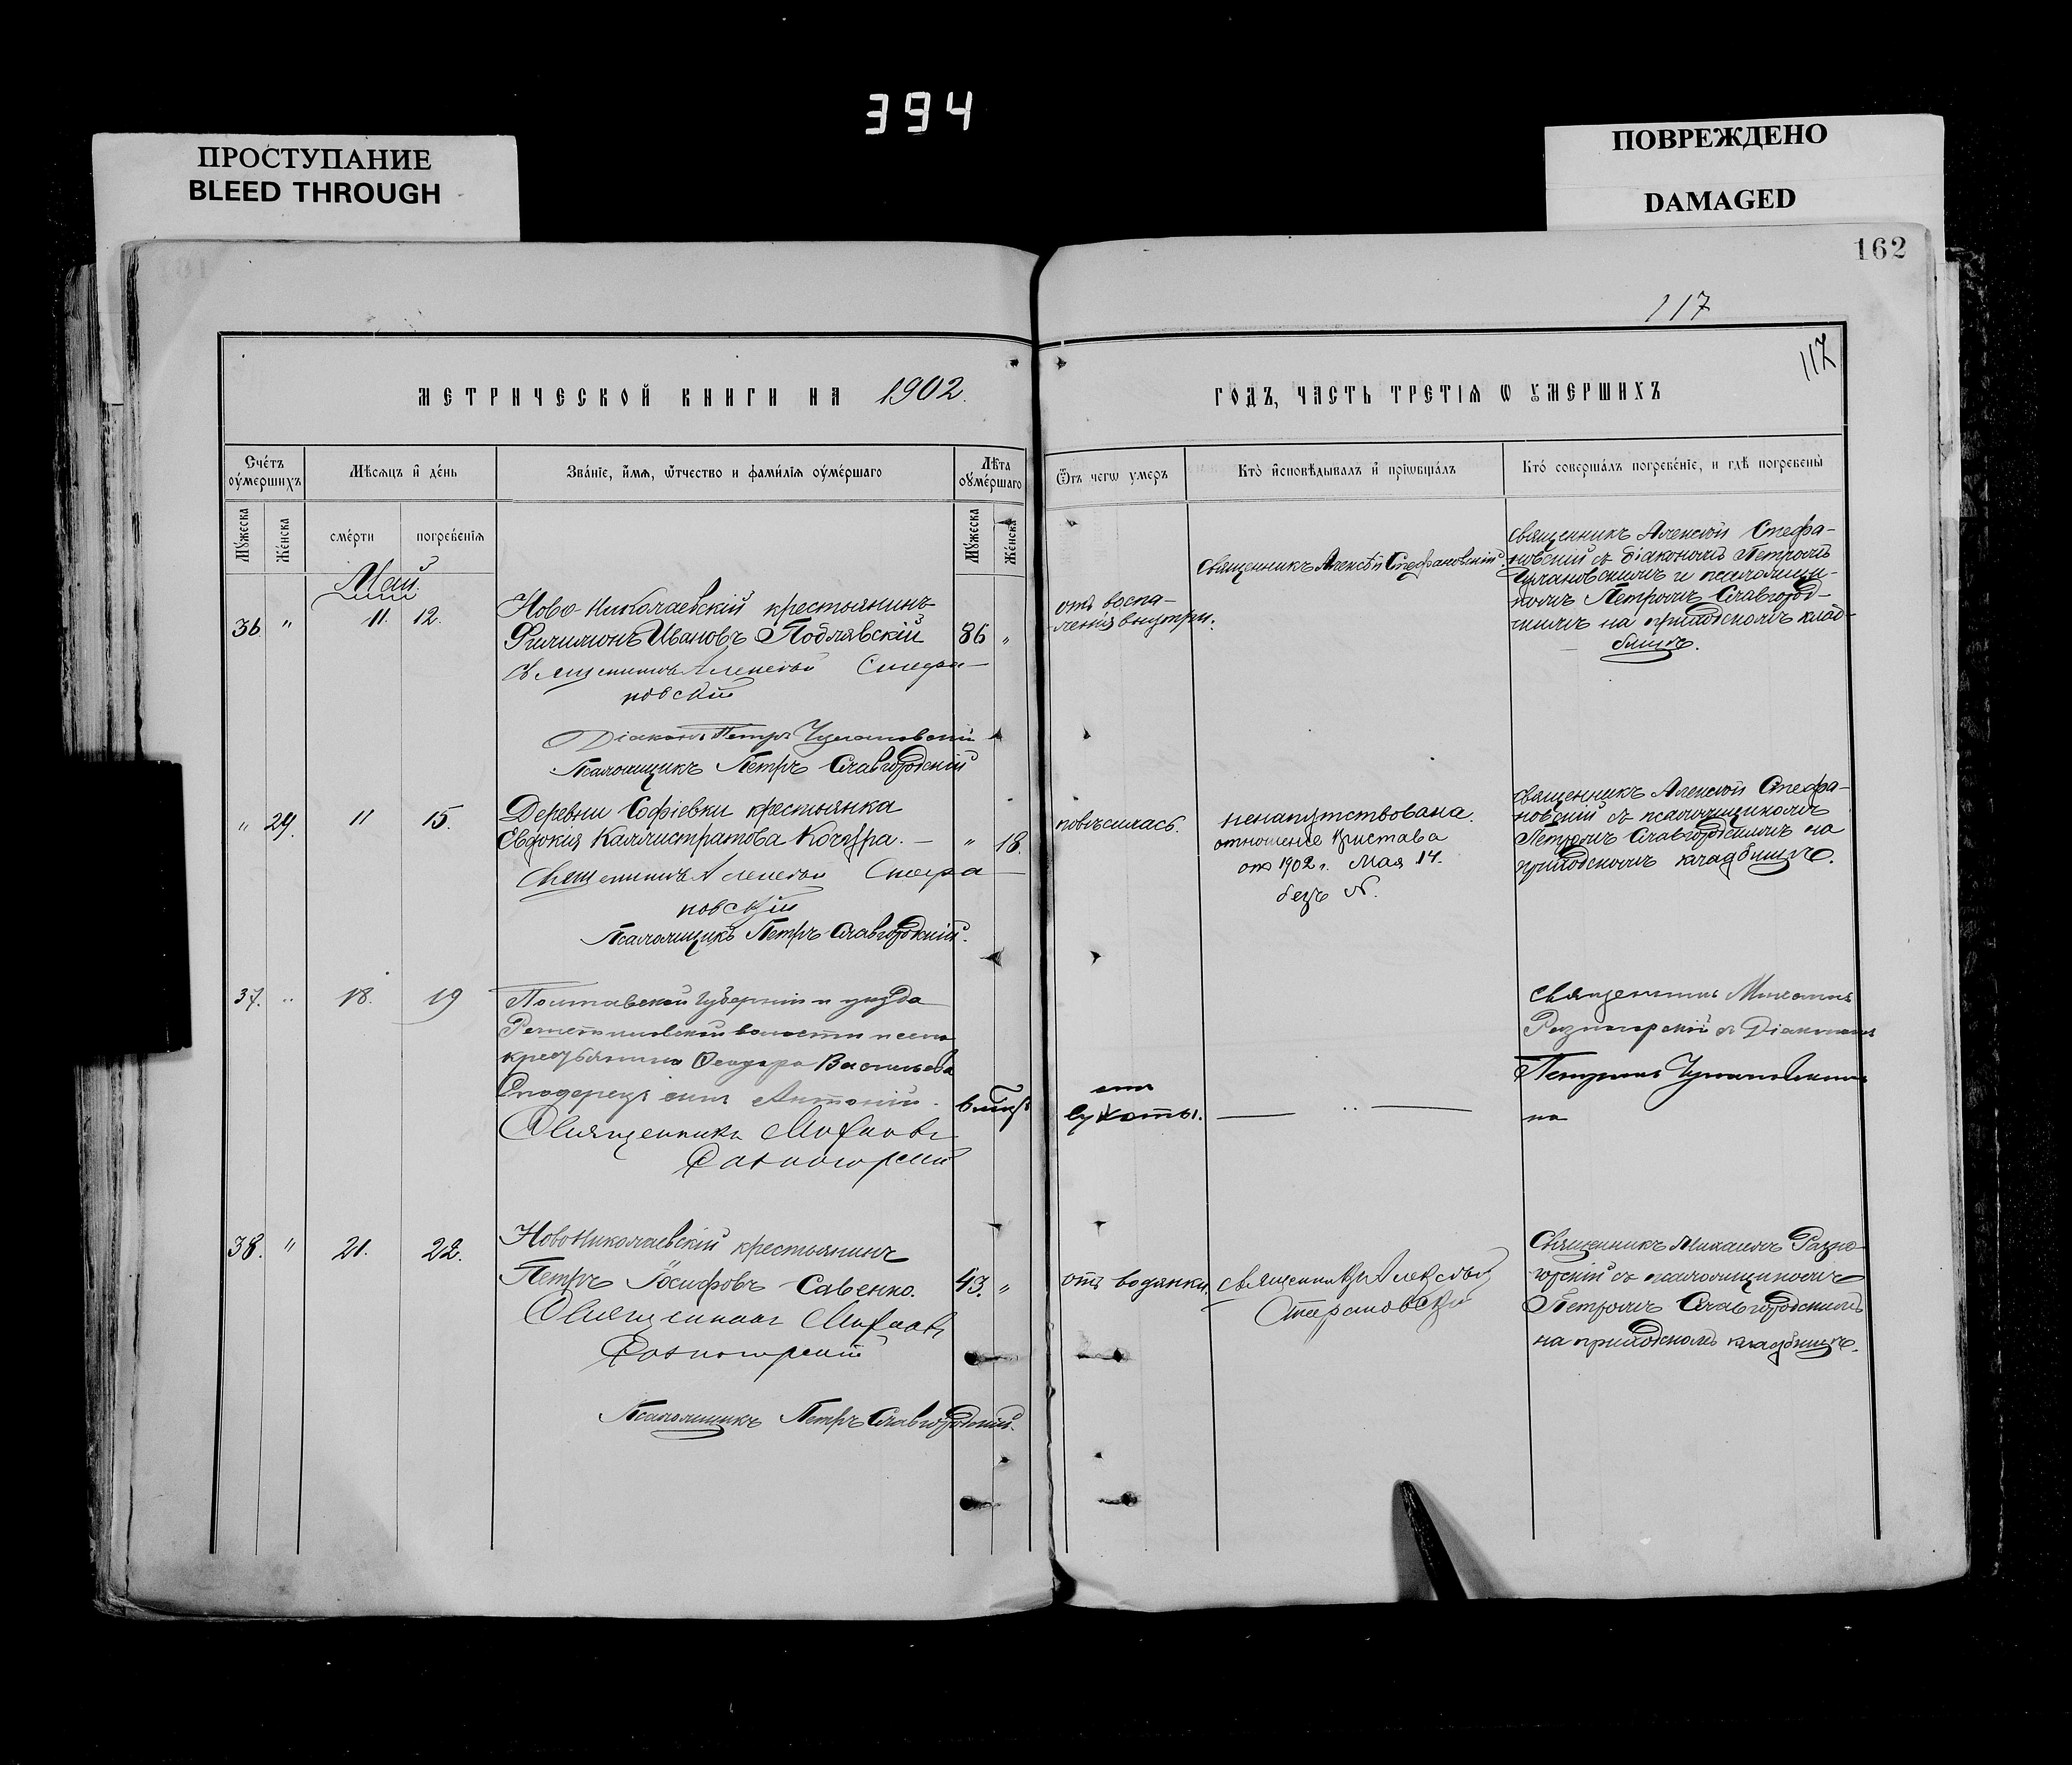 394
ПРОСТУПАНИЕ
BLEED THROUGH
ПОВРЕЖДЕНО
DAMAGED
162
117
117
МЕТРИЧЕСКОЙ КНИГИ НА 1902.
ГОДЪ, ЧАСТЬ ТРЕТІѦ Ѡ ОУМЕРШИХЪ
Сче́тъ оу҆ме́ршихъ
Мѣ́сѧцъ и҆ де́нь
Зва́нїе, и҆́мѧ, ѻ҆́тчество и фами́лїѧ оу҆ме́ршаго
Лѣ́та оу҆ме́ршаго
Ѿ чегѡ̀ умеръ
Кто̀ и҆сповѣ́дывалъ и҆ прїѡбща́лъ
Кто̀ соверша́лъ погребе́нїе, и гдѣ̀ погребены̀
Мꙋ́жеска
Же́нска
сме́рти
погребе́нїѧ
Мꙋ́жеска
Же́нска
Май
36 " 11. 12.
Ново-Николаевскій крестьянинъ
Филимонъ Ивановъ Подлявскій 86 "
Священникъ Алексѣй Стефа-
новскій
Діаконъ Петръ
Псаломщикъ Петръ Славгородскій
отъ воспа-
ленія внутри.
Священникъ Алексѣй Стефановскій
Священникъ Алексѣй Стефа-
новскій съ діакономъ Петромъ
и псаломщи-
комъ Петромъ Славгород-
скимъ на приходскомъ клад-
бищѣ.
" 29. 11 15.
Деревни Софіевки крестьянка
Евдокія Каллистратова Кочура. — " 18.
Священникъ Алексѣй Стефа
новскій
Псаломщикъ Петръ Славгородскій.
повѣсилась.
ненапутствована.
отношеніе Пристава
отъ 1902 г. Мая 14.
безъ N.
Священникъ Алексѣй Стефа-
новскій съ псаломщикомъ
Петромъ Славгородскимъ на
приходскомъ кладбищѣ.
37. " 18. 19
Полтавской губерніи и уѣзда
Решетиловской волости и села
крестьянина Ѳеодора Васильева
сынъ Антоній.
Священникъ Михаилъ
Разногорскій
отъ
сухоты.
— " —
Священникъ Михаилъ
Разногорскій съ Діакономъ
Петромъ
на
38. " 21. 22.
НовоНиколаевскій крестьянинъ
Петръ Іосифовъ Савенко. 43. "
Священникъ Михаилъ
Разногорскій
Псаломщикъ Петръ Славгородскій.
отъ водянки.
Священникъ Алексѣй
Стефановскій
Священникъ Михаилъ Разно-
горскій съ псаломщикомъ
Петромъ Славгородскимъ
на приходскомъ кладбищѣ.